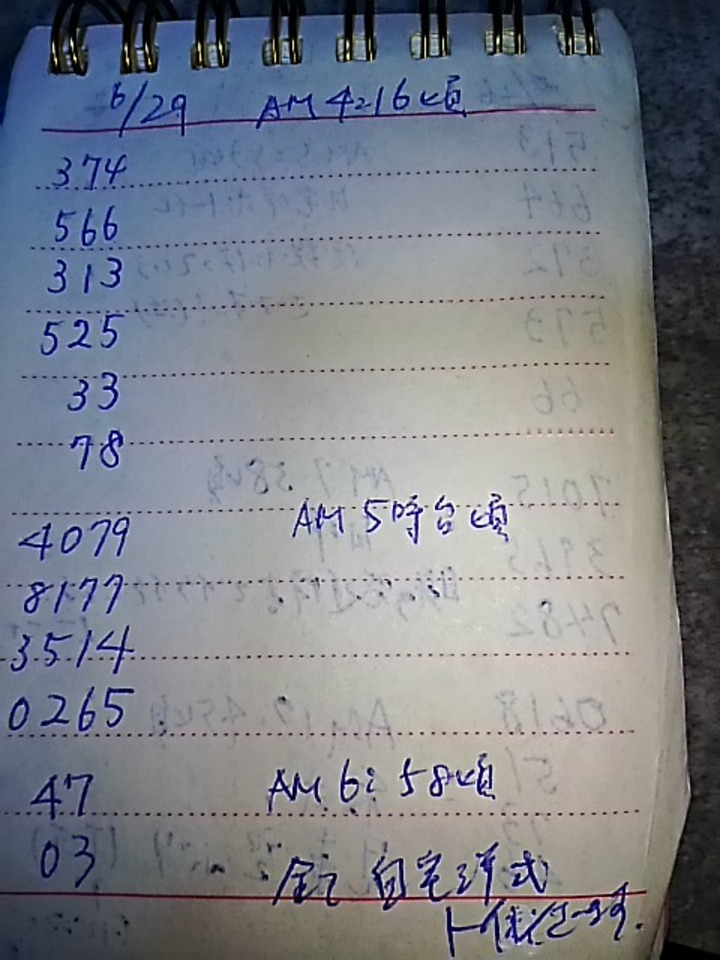 6/29 AM 4:16頃
374
566
313
525
33
78
4079 AM 5時台頃
8177
3514
0265
47 AM 6:58頃
03
全て自宅洋式
ト